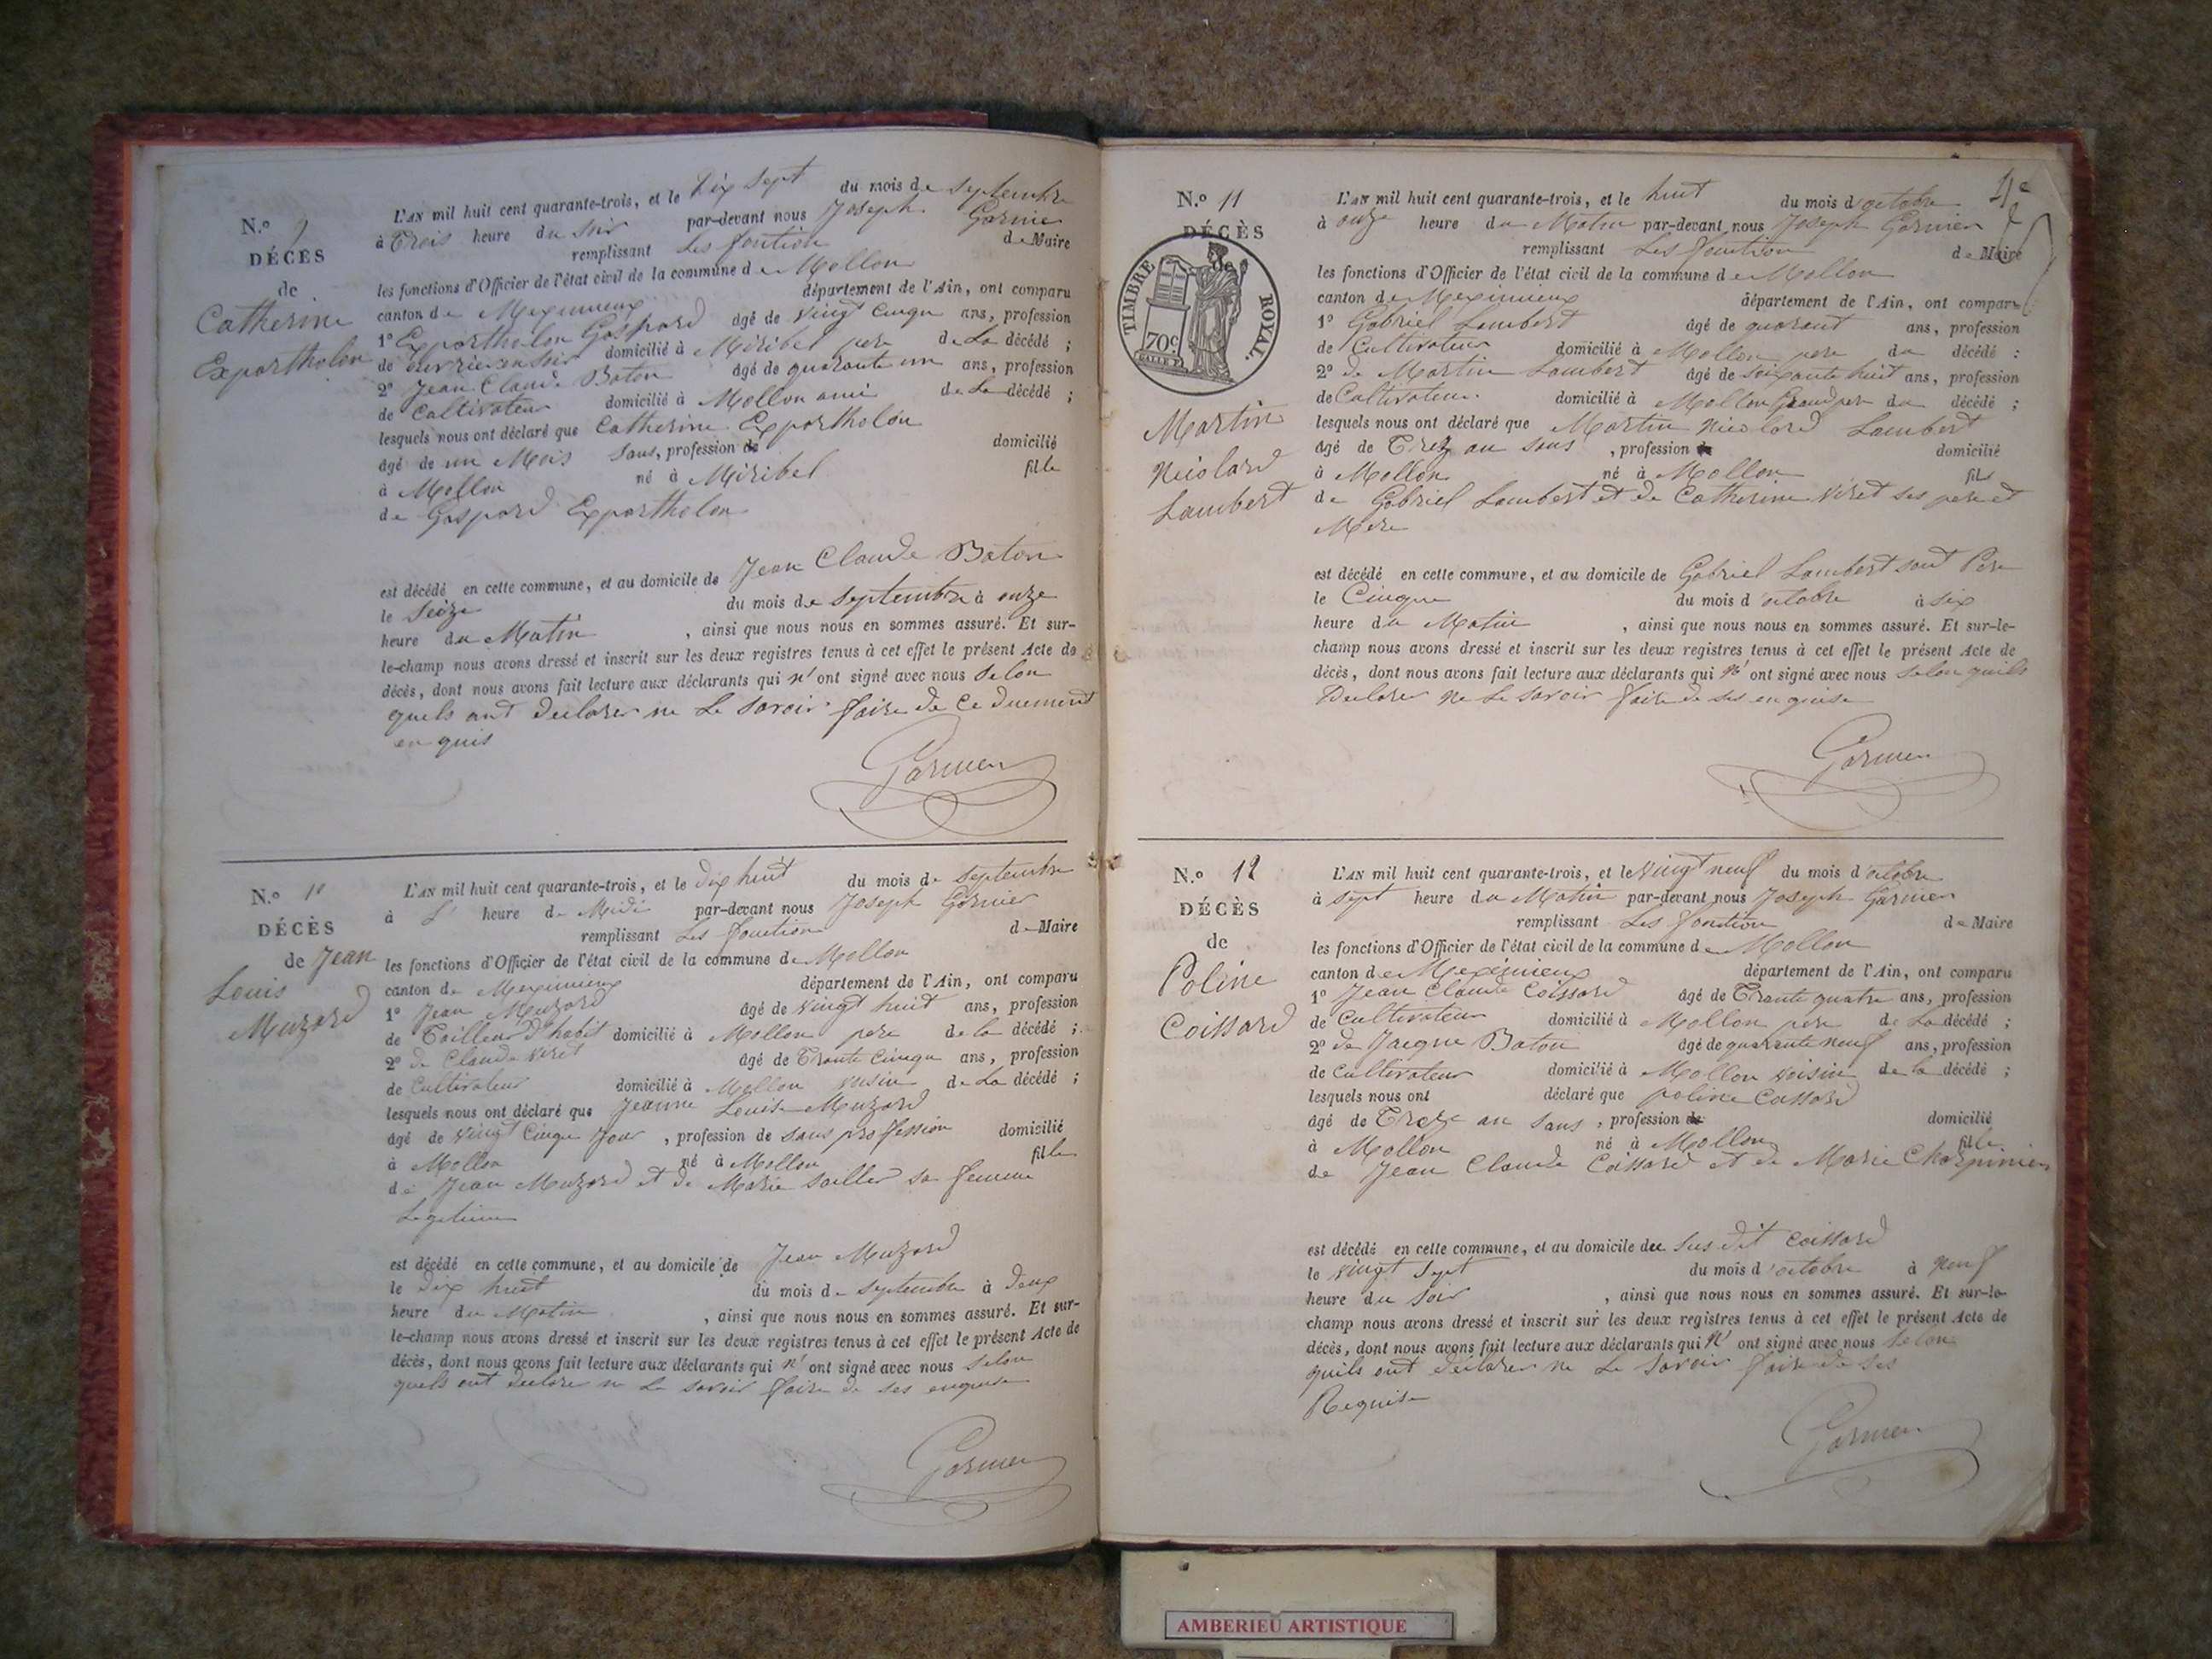 N.º 9
DÉCÈS
de
Catherine
Exportholon
L'AN mil huit cent quarante-trois, et le Dix sept du mois de septembre
à Trois heure du soir par-devant nous Joseph Garnier
remplissant Les fontion de Maire
les fonctions d'Officier de l'état civil de la commune de Mollon
canton de Meximieux département de l'Ain, ont comparu
1º Exportholon Gaspard âgé de vingt cinqu ans, profession
de domicilié à Miribel pere de La décédé ;
2º Jean Claude Baton âgé de quarante un ans, profession
de Caltivateur domicilié à Mollon ami de La décédé ;
lesquels nous ont déclaré que Catherine Exportholon
âgé de un Mois sans, profession de domicilié
à Mollon né à Miribel fille
de Gaspard Exportholon
est décédé en cette commune, et au domicile de Jean Claude Baton
le seize du mois de septembre à onze
heure du Matin , ainsi que nous nous en sommes assuré. Et sur-
le-champ nous avons dressé et inscrit sur les deux registres tenus à cet effet le présent Acte de
décès, dont nous avons fait lecture aux déclarants qui n' ont signé avec nous selon
quels ont declarer ne Le savoir faire de ce duement
en quis
Garnier
N.º 10
DÉCÈS
de Jean
Louis
Muzard
L'AN mil huit cent quarante-trois, et le dix huit du mois de septembre
à heure de Midi par-devant nous Joseph Garnier
remplissant Les fontion de Maire
les fonctions d'Officier de l'état civil de la commune de Mollon
canton de Meximieux département de l'Ain, ont comparu
1º Jean Muzard âgé de vingt huit ans, profession
de Tailleur d'habit domicilié à Mollon pere de la décédé ;
2º de Claude Viret âgé de Trante Cinqu ans, profession
de Cultivateur domicilié à Mollon voisin de La décédé ;
lesquels nous ont déclaré que Jeanne Louise Muzard
âgé de vingt Cinqu Jour , profession de sans proffession domicilié
à Mollon né à Mollon fille
de Jean Muzard et de Marie sailler sa femme
Legetime
est décédé en cette commune, et au domicile de Jean Muzard
le dix huit du mois de septembre à deux
heure du Matin , ainsi que nous nous en sommes assuré. Et sur-
le-champ nous avons dressé et inscrit sur les deux registres tenus à cet effet le présent Acte de
décès, dont nous avons fait lecture aux déclarants qui n' ont signé avec nous selon
quels ont declarer ne Le savoir faire de ses enquise
Garnier
N.º 11
DÉCÈS
TIMBRE ROYAL.
70c
Martin
Nicolard
Lambert
L'AN mil huit cent quarante-trois, et le huit du mois d'octobre
à onze heure du Matin par-devant nous Joseph Garnier
remplissant Les fontion de Maire
les fonctions d'Officier de l'état civil de la commune de Mollon
canton de Meximieux département de l'Ain, ont comparu
1º Gabriel Lambert âgé de quarant ans, profession
de Cultivateur domicilié à Mollon pere du décédé :
2º de Martin Lambert âgé de soixante huit ans, profession
de Caltivateur domicilié à Mollon Grandper du décédé ;
lesquels nous ont déclaré que Martin Nicolard Lambert
âgé de Trez an sans , profession de domicilié
à Mollon né à Mollon fils
de Gabriel Lambert et de Catherine Viret ses pere et
Mere
est décédé en cette commune, et au domicile de Gabriel Lambert sont Pere
le Cinque du mois d'octobre à six
heure du Matin , ainsi que nous nous en sommes assuré. Et sur-le-
champ nous avons dressé et inscrit sur les deux registres tenus à cet effet le présent Acte de
décès, dont nous avons fait lecture aux déclarants qui n' ont signé avec nous selon quils
Declarer ne Le savoir faire de ses en quise
Garnier
N.º 12
DÉCÈS
de
Poline
Coissard
L'AN mil huit cent quarante-trois, et le vingt neuf du mois d'octobre
à sept heure du Matin par-devant nous Joseph Garnier
remplissant Les fontion de Maire
les fonctions d'Officier de l'état civil de la commune de Mollon
canton de Meximieux département de l'Ain, ont comparu
1º Jean Claude Coissard âgé de Trante quatre ans, profession
de Cultivateur domicilié à Mollon pere de La décédé ;
2º de Jacque Baton âgé de quarante neuf ans, profession
de Cultivateur domicilié à Mollon voisin de la décédé ;
lesquels nous ont déclaré que poline Cassard
âgé de Treze an sans , profession de domicilié
à Mollon né à Mollon fille
de Jean Claude Cassard et de Marie Charpinier
est décédé en cette commune, et au domicile du sus dit Coissard
le vingt sept du mois d'octobre à neuf
heure du soir , ainsi que nous nous en sommes assuré. Et sur-le-
champ nous avons dressé et inscrit sur les deux registres tenus à cet effet le présent Acte de
décès, dont nous avons fait lecture aux déclarants qui n' ont signé avec nous selon
quils ont déclarer ne Le savoir faire de ses
Requise
Garnier
AMBERIEU ARTISTIQUE